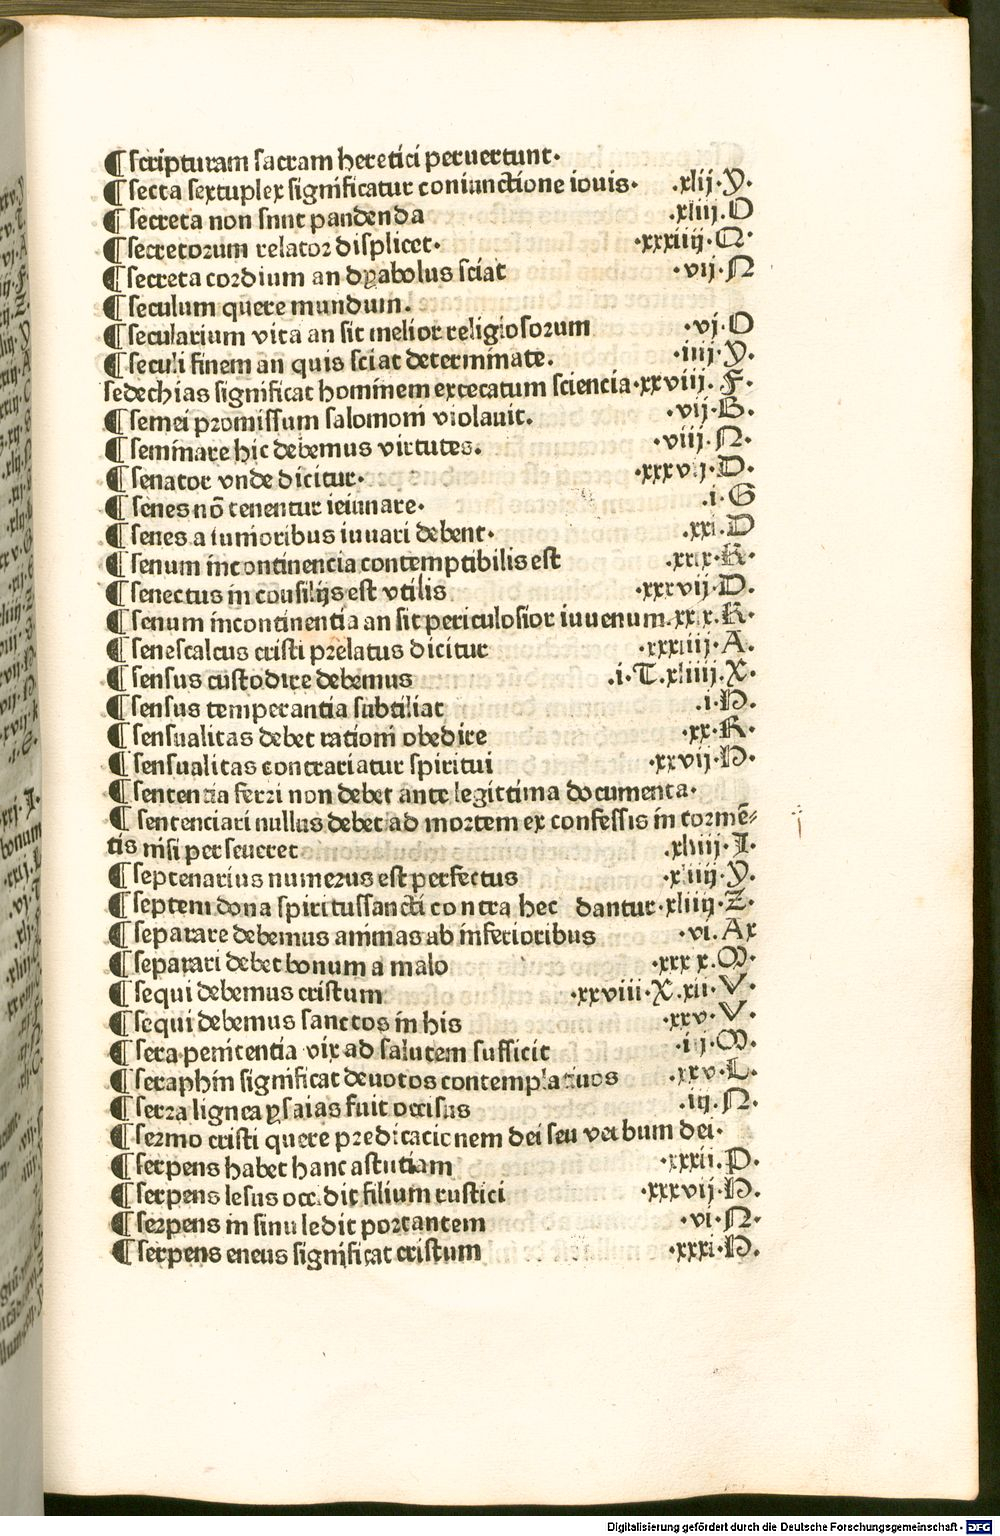 ¶ scripturam sacram heretici peruertunt.
¶ secta sextuplex significatur coniunctione iouis. .xlij.Y.
¶ secreta non snnt pandenda .xliij.O
¶ secretorum relator displicet. .xxxiiij.Q.
¶ secreta cordium an dyabolus sciat .vij.N
¶ seculum quere mundum.
¶ secularium vita an sit melior religiosorum .vj.O
¶ seculi finem an quis sciat determinate. .iiij.Y.
sedechias significat hominem excecatum sciencia.xxviij.F.
¶ semei promissum salomoni violauit. .vij.B.
¶ seminare hic debemus virtutes. .viij.N.
¶ senator vnde dicitur. .xxxvij.D.
¶ senes nō tenentur ieiunare. .i.G
¶ senes a iunioribus iuuari debent. .xxi.D
¶ senum incontinencia contemptibilis est .xxix.K.
¶ senectus in consilijs est vtilis .xxxvij.D.
¶ senum incontinentia an sit periculosior iuuenum.xxix.K.
¶ senescalcus cristi prelatus dicitur .xxxiiij.A.
¶ sensus custodire debemus .i.T.xliiij.X.
¶ sensus temperantia subtiliat .i.H.
¶ sensualitas debet rationi obedire .xx.K.
¶ sensualitas contrariatur spiritui .xxvij.H.
¶ sententia ferri non debet ante legittima documenta.
¶ sentenciari nullus debet ad mortem ex confessis in tormē⸗
tis nisi perseueret .xliiij.I.
¶ septenarius numerus est perfectus .xliiij.Y.
¶ septem dona spiritussancti contra hec dantur.xliiij.Z.
¶ separare debemus animas ab inferioribus .vi.Ax
¶ separari debet bonum a malo .xxxx.M.
¶ sequi debemus cristum .xxviii.X.xii.V.
¶ sequi debemus sanctos in his .xxv.V.
¶ sera penitentia vix ad salutem sufficit .ij.M.
¶ seraphin significat deuotos contemplatiuos .xxv.L.
¶ serra lignea ysaias fuit occisus .iij.N.
¶ sermo cristi quere predicacicnem dei seu verbum dei.
¶ serpens habet hanc astutiam .xxxii.P.
¶ serpens lesus occidit filium rustici .xxxvij.H.
¶ serpens in sinu ledit portantem .vi.N.
¶ serpens eneus significat cristum .xxxi.H.
Digitalisierung gefördert durch die Deutsche Forschungsgemeinschaft - DFG